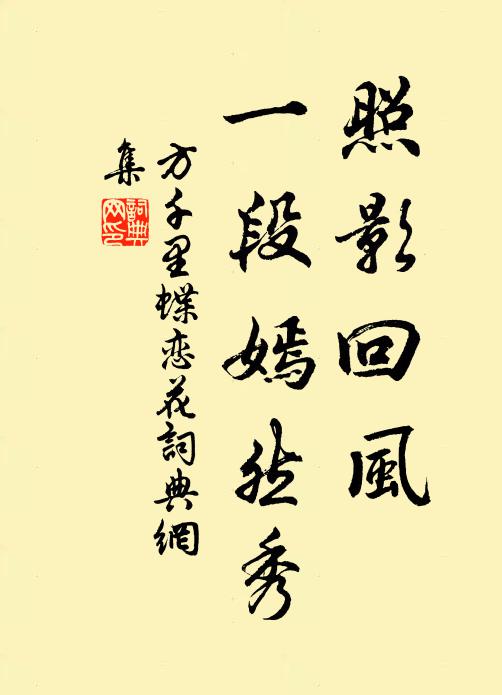 照影回風
一段嫣然秀
方千里蝶恋花詞典網
集
詞典網印